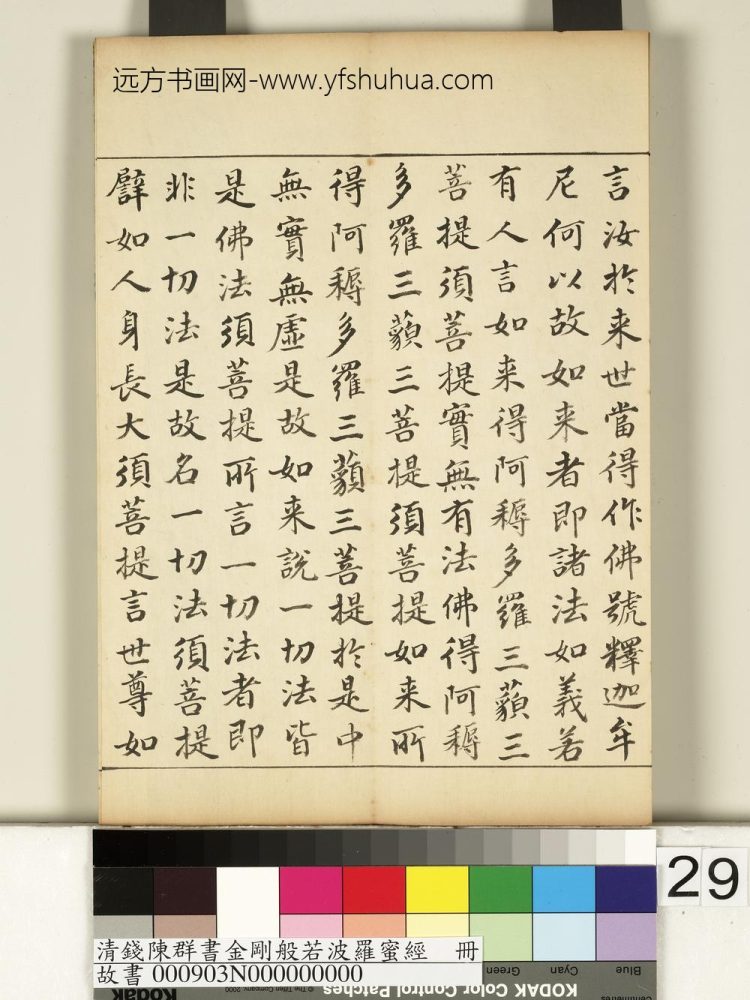 远方书画网-www.yfshuhua.com
言汝於来世當得作佛號釋迦牟
尼何以故如来者即諸法如義若
有人言如来得阿耨多羅三藐三
菩提須菩提實無有法佛得阿耨
多羅三藐三菩提須菩提如来所
得阿耨多羅三藐三菩提於是中
無實無虛是故如来說一切法皆
是佛法須菩提所言一切法者即
非一切法是故名一切法須菩提
譬如人身長大須菩提言世尊如
29
清錢陳群書金剛般若波羅蜜經 冊
故書 000903N000000000
Green
Cyan
Blue
Centimetres
© The Tiffen Company, 2000
KODAK Color Control Patches